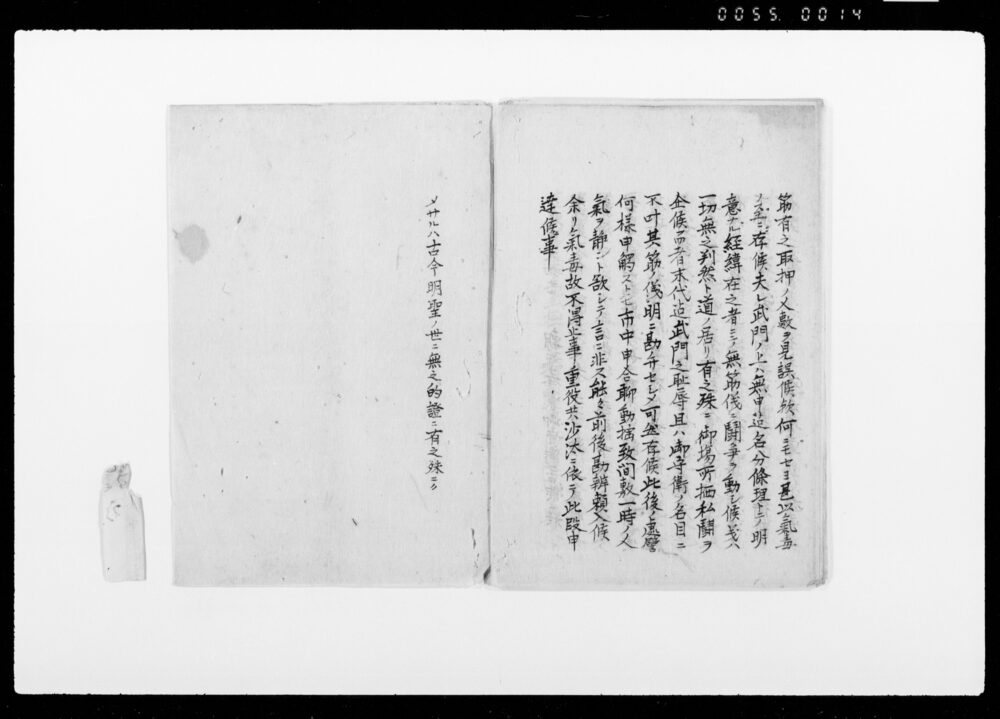 0055. 0014
筋有之取押ノ人數ヲ見誤候欤何ニモセヨ甚以氣毒
ノ至ニ存候夫レ武門ノ上ハ無申迄名分條理上ニノ明
意ナル経緯在之者ニテ無筋儀ニ闘争ヲ動シ候義ハ
一切無之判然ト道ノ居リ有之殊ニ御場所柄私闘ヲ
企候而者末代迄武門之耻辱且ハ御守衛ノ名目ニ
不叶其筋ノ儀明ニ勘弁セシメ可然存候此後ハ虚譬
何様申觸ストモ市中申合聊動揺致間敷一時ノ人
氣ヲ静ント欲シテ言ニ非ス能々前後勘辨頼入候
余リ氣毒故不得止事重役共沙汰ニ依テ此段申
達候事
〆サルハ古今明聖ノ世ニ無之的證ニ有之殊ニ